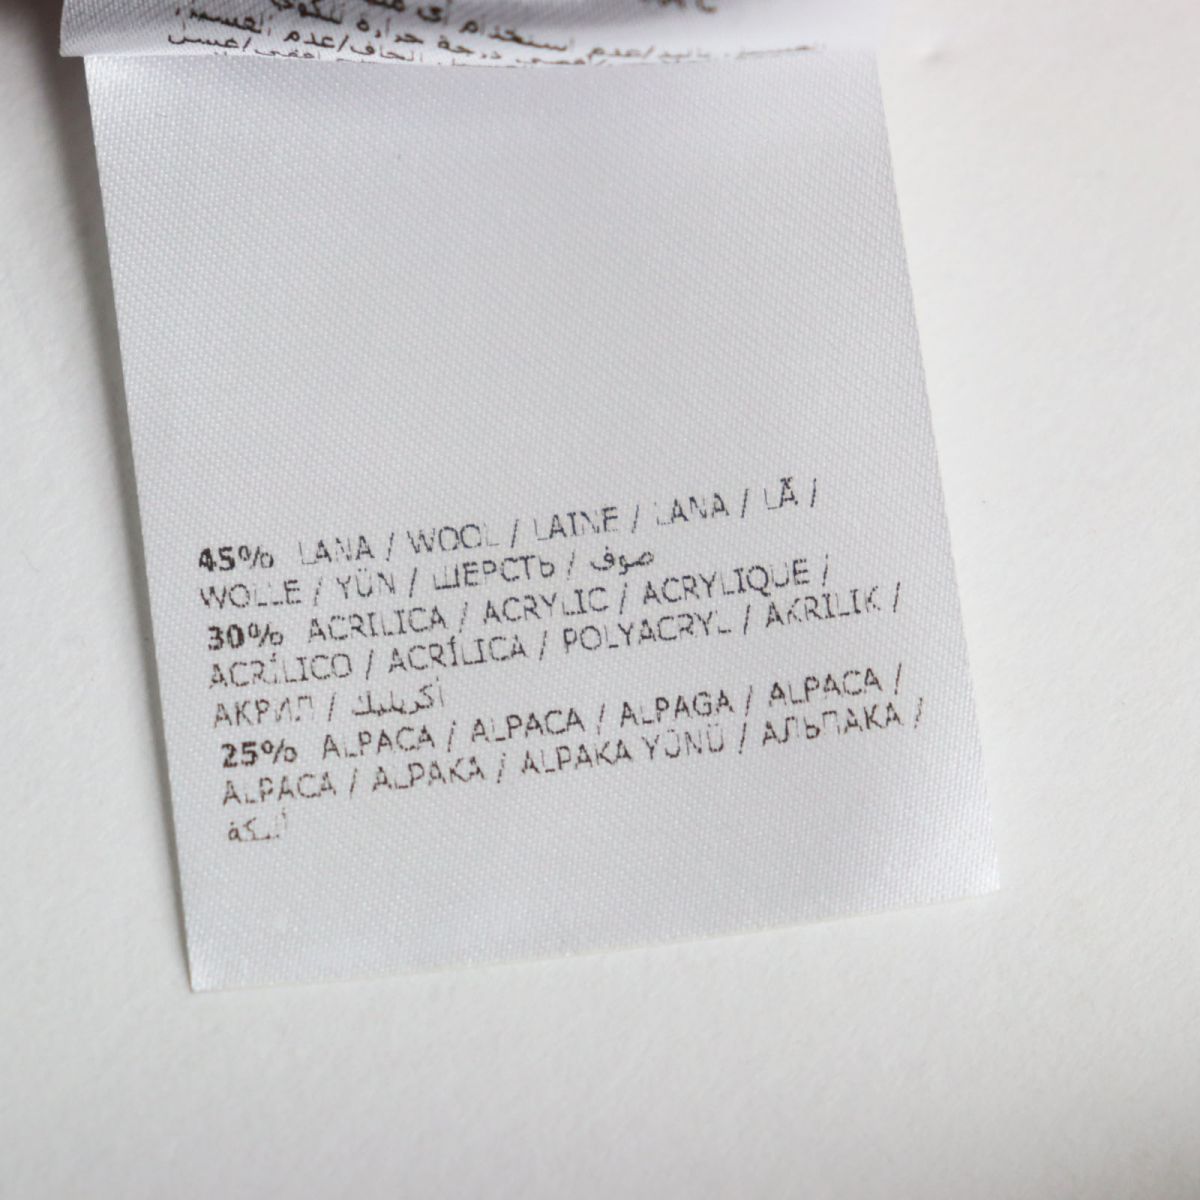 درجة حرارة للكوي
45% LANA / WOOL / LAINE / LANA / LÃ /
WOLLE / YÜN / ШЕРСТЬ / صوف
30% ACRILICA / ACRYLIC / ACRYLIQUE /
ACRÍLICO / ACRÍLICA / POLYACRYL / AKRILIK /
АКРИЛ / أكريليك
25% ALPACA / ALPACA / ALPAGA / ALPACA /
ALPACA / ALPAKA / ALPAKA YÜNÜ / АЛЬПАКА /
ألبكة